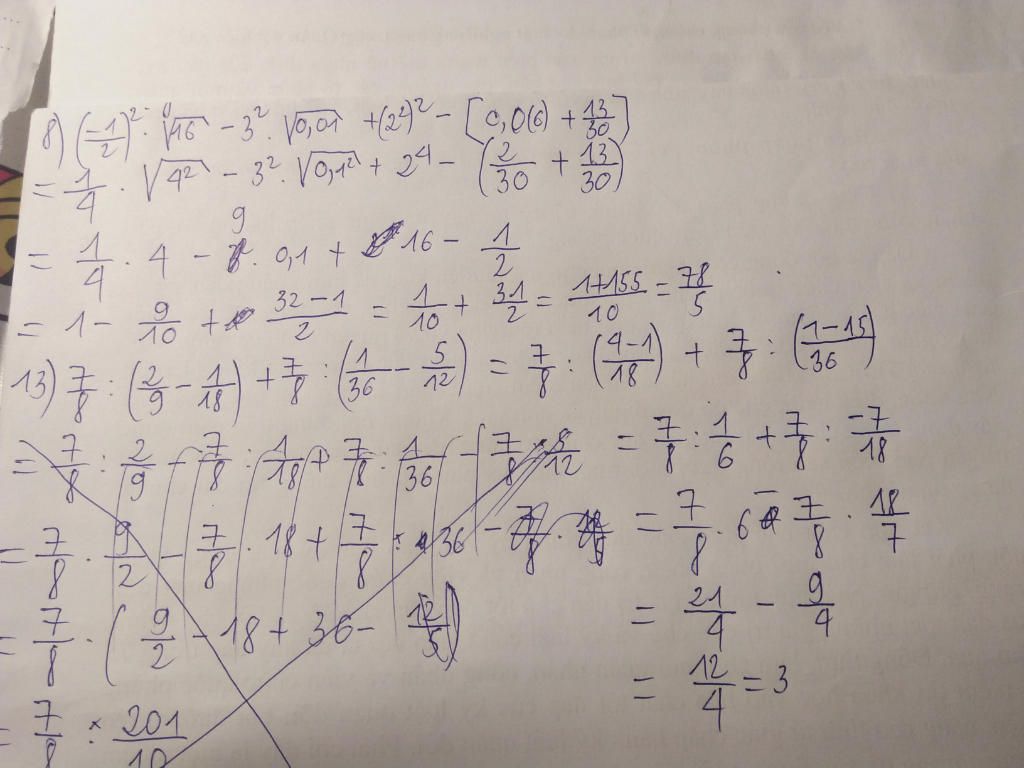 8) (-1/2)² · √16 - 3² · √0,01 + (2²)² - [0,0(6) + 13/30]
= 1/4 · √4² - 3² · √0,1² + 2⁴ - (2/30 + 13/30)
= 1/4 · 4 - 9 · 0,1 + 16 - 1/2
= 1 - 9/10 + (32-1)/2 = 1/10 + 31/2 = (1+155)/10 = 78/5
13) 7/8 : (2/9 - 1/18) + 7/8 : (1/36 - 5/12) = 7/8 : ((4-1)/18) + 7/8 : ((1-15)/36)
= 7/8 : 2/9 - 7/8 : 1/18 + 7/8 : 1/36 - 7/8 : 5/12
= 7/8 · 9/2 - 7/8 · 18 + 7/8 · 36 -
= 7/8 · (9/2 - 18 + 36 - 12/5)
= 7/8 · 201/10
= 7/8 : 1/6 + 7/8 : -7/18
= 7/8 · 6 - 7/8 · 18/7
= 21/4 - 9/4
= 12/4 = 3